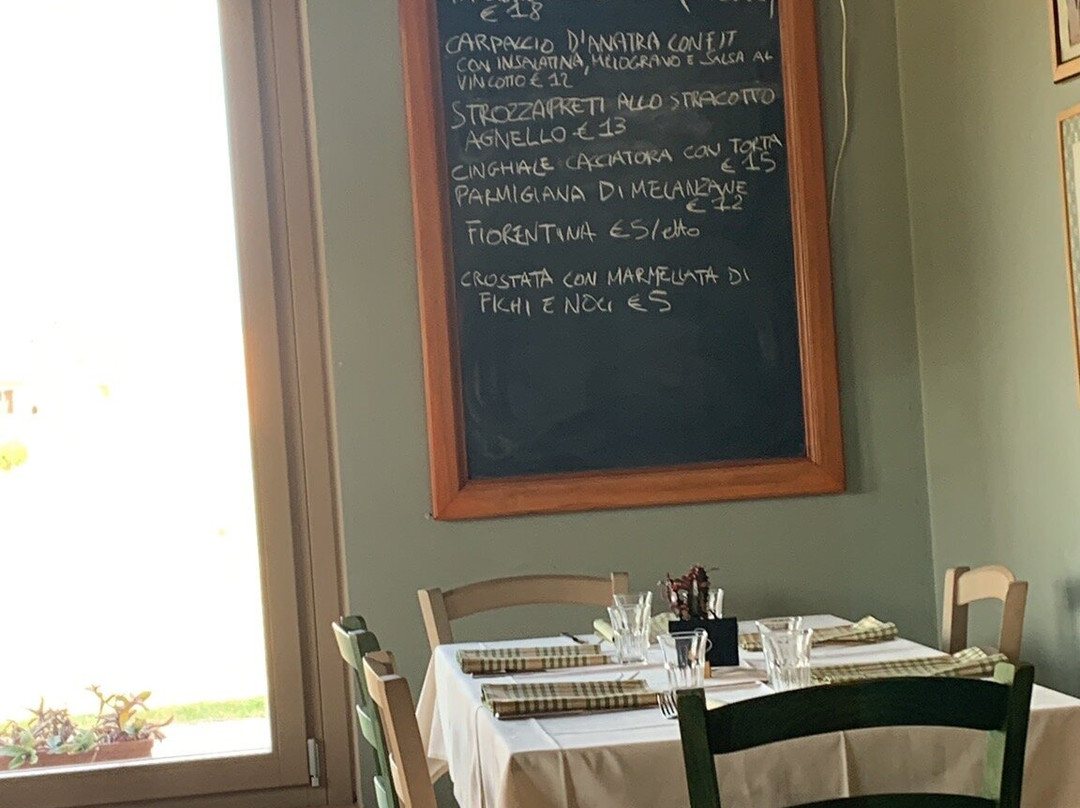 € 18
CARPACCIO D'ANATRA CONFIT
CON INSALATINA, MELOGRANO E SALSA AL
VINCOTTO € 12
STROZZAPRETI ALLO STRACOTTO
AGNELLO € 13
CINGHIALE CACCIATORA CON TORTA
€ 15
PARMIGIANA DI MELANZANE
€ 12
FIORENTINA €5/etto
CROSTATA CON MARMELLATA DI
FICHI E NOCI €5